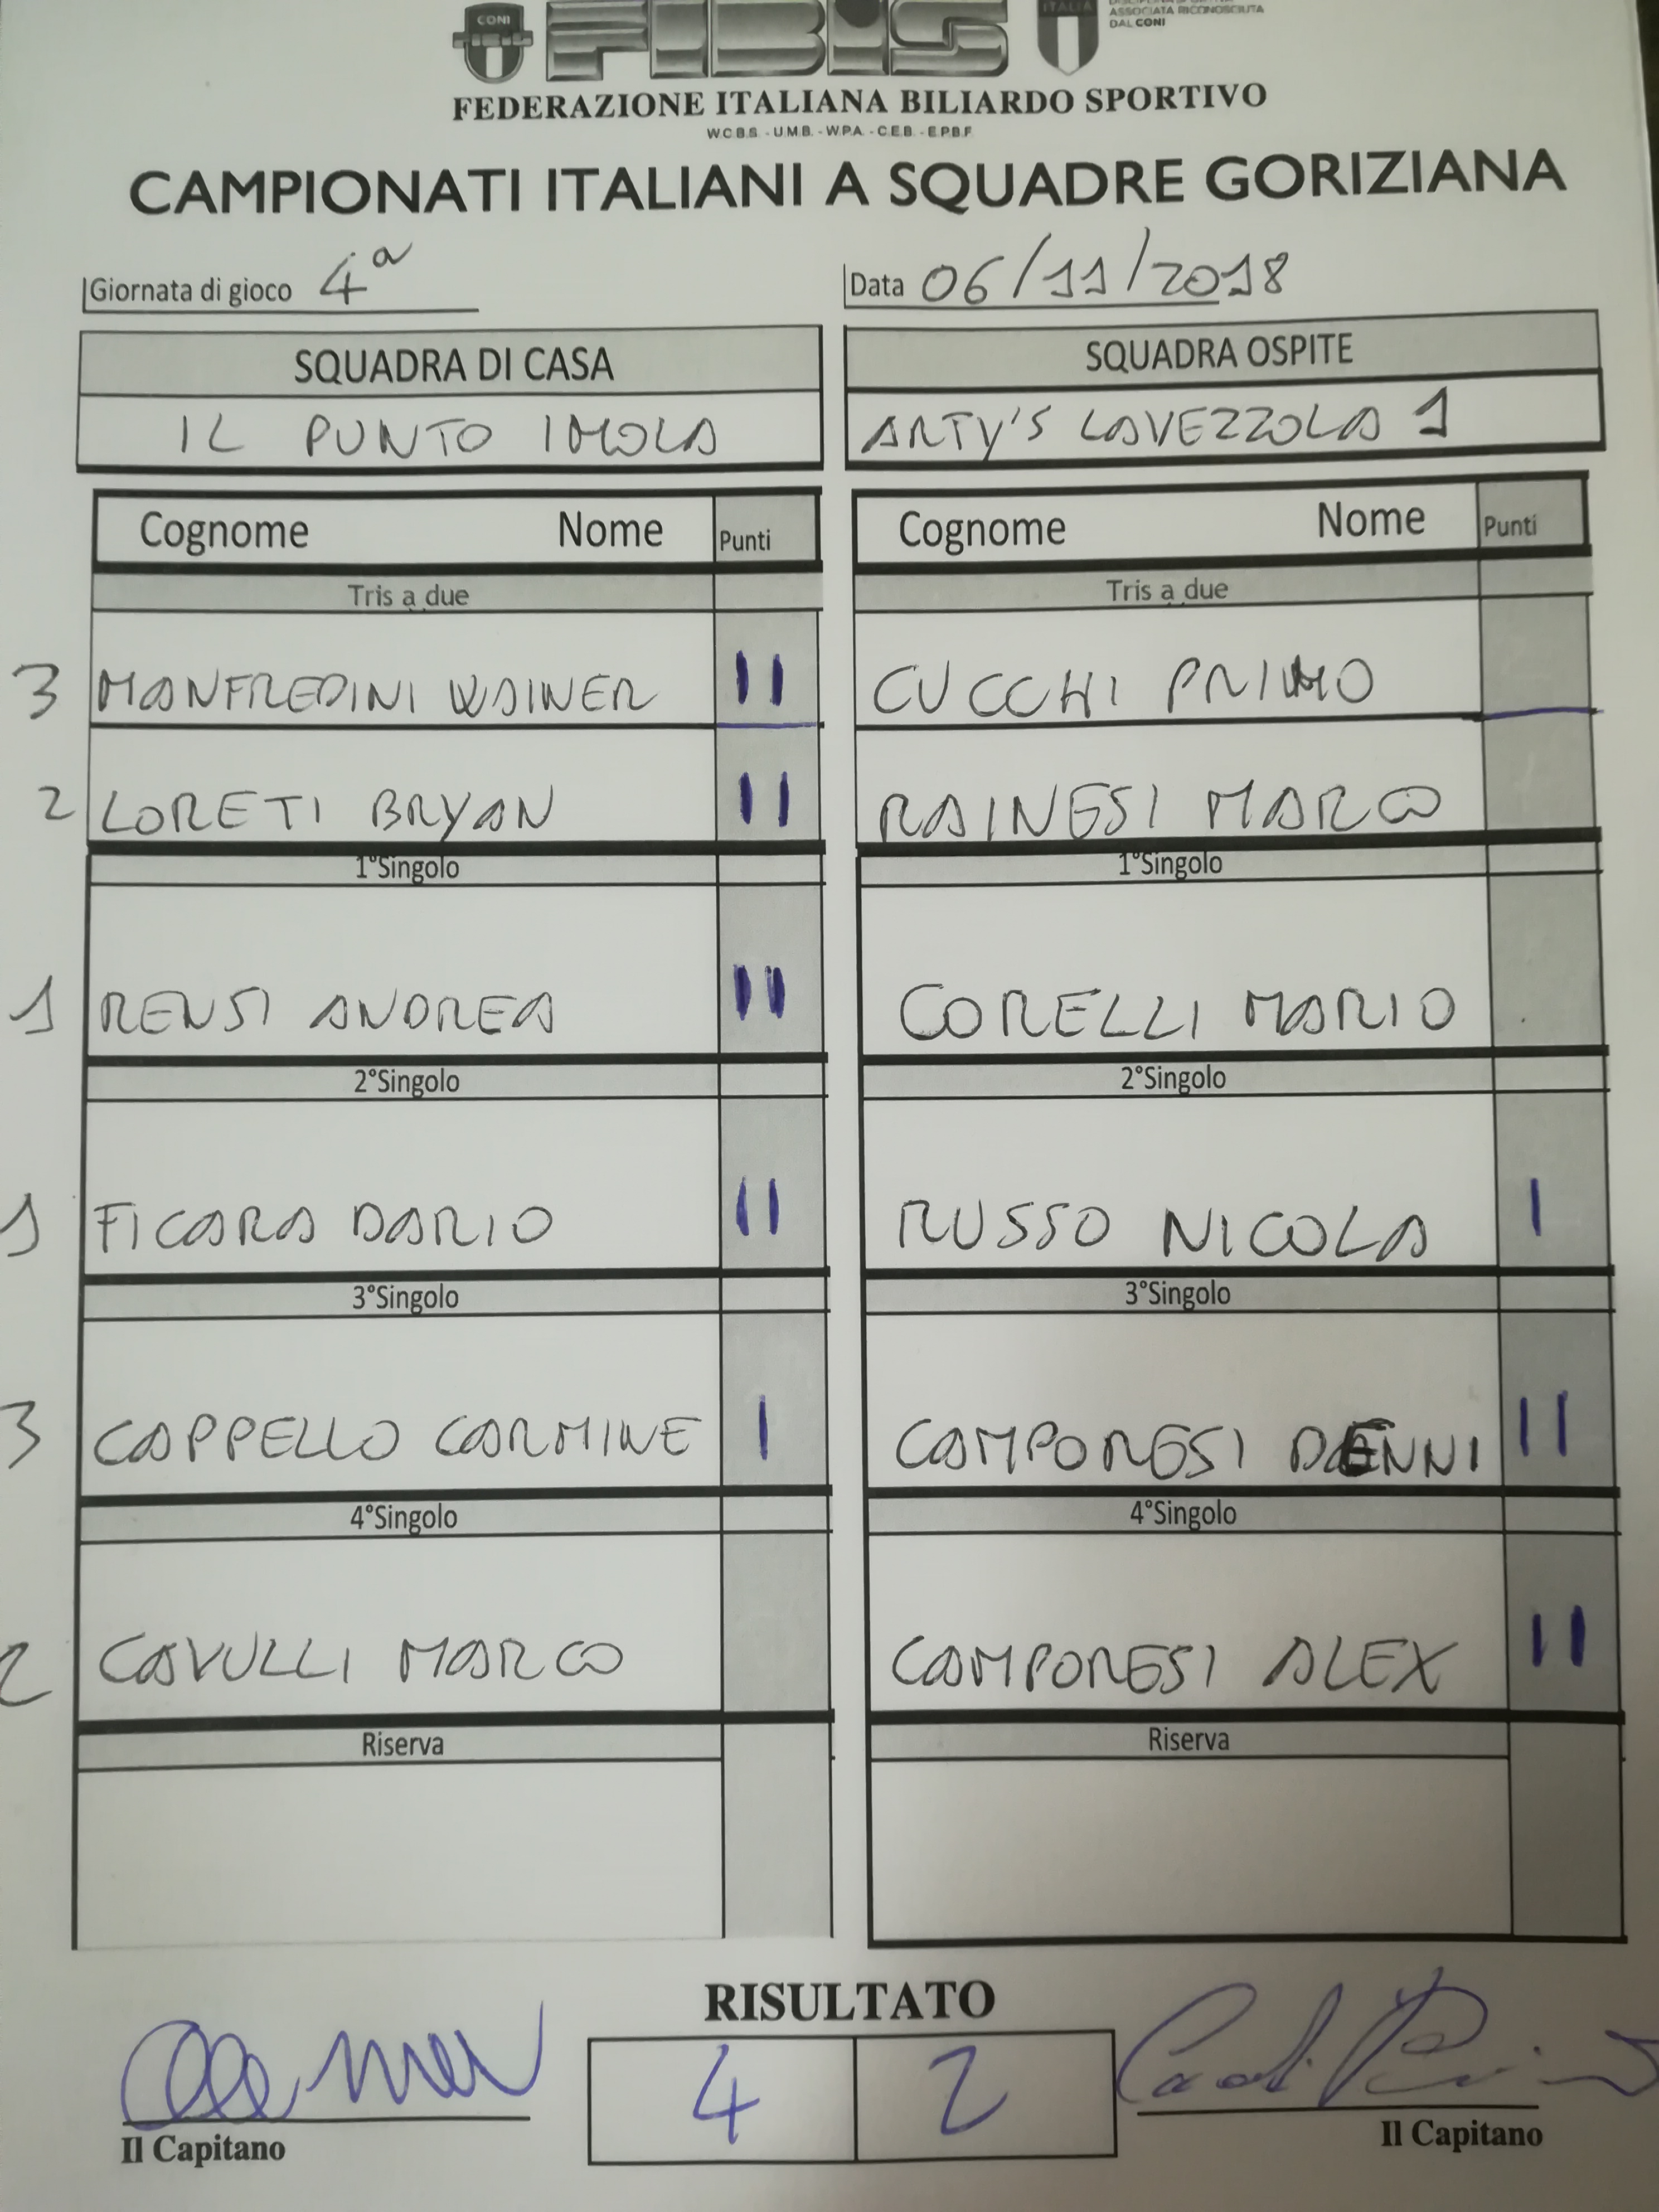 CONI
FIBIS
ITALIA
ASSOCIATA RICONOSCIUTA
DAL CONI
FEDERAZIONE ITALIANA BILIARDO SPORTIVO
W.C.B.S. - U.M.B. - W.P.A. - C.E.B. - E.P.B.F.
CAMPIONATI ITALIANI A SQUADRE GORIZIANA
Giornata di gioco 4ª Data 06/11/2018
SQUADRA DI CASA SQUADRA OSPITE
IL PUNTO IMOLA ARTY'S LAVEZZOLA 1
Cognome Nome Punti Cognome Nome Punti
Tris a due Tris a due
3 MANFREDINI WAINER II CUCCHI PRIMO
2 LORETI BRYAN II RAINESI MARCO
1°Singolo 1°Singolo
1 RENSI ANDREA II CORELLI MARIO
2°Singolo 2°Singolo
1 FICARA DARIO II RUSSO NICOLA I
3°Singolo 3°Singolo
3 CAPPELLO CARMINE I CAMPORESI DENNI II
4°Singolo 4°Singolo
2 CAVULLI MARCO CAMPORESI ALEX II
Riserva Riserva
RISULTATO
4 2
Il Capitano Il Capitano